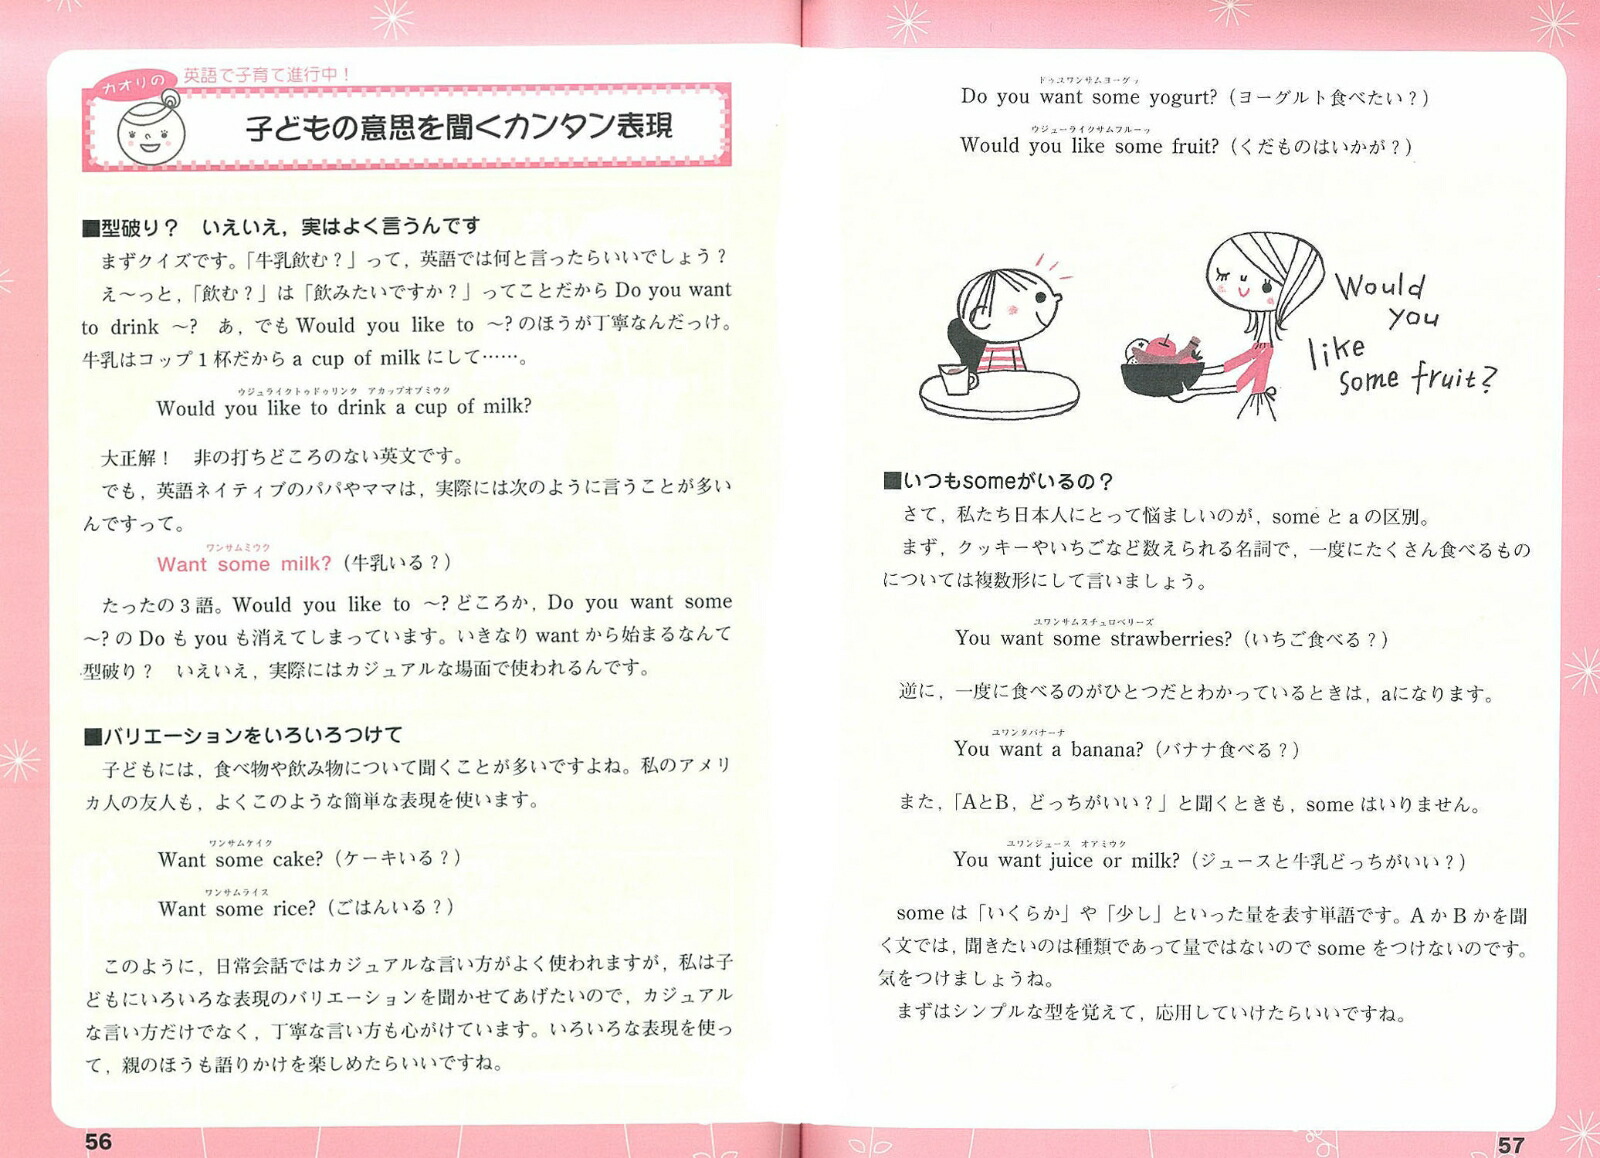 カオリの
英語で子育て進行中！
子どもの意思を聞くカンタン表現
■型破り？　いえいえ，実はよく言うんです
まずクイズです。「牛乳飲む？」って，英語では何と言ったらいいでしょう？
え〜っと，「飲む？」は「飲みたいですか？」ってことだから Do you want
to drink 〜?　あ，でも Would you like to 〜? のほうが丁寧なんだっけ。
牛乳はコップ１杯だから a cup of milk にして……。
ウジュライクトゥドゥリンク　アカップオブミウク
Would you like to drink a cup of milk?
大正解！　非の打ちどころのない英文です。
でも，英語ネイティブのパパやママは，実際には次のように言うことが多い
んですって。
ワンサムミウク
Want some milk?（牛乳いる？）
たったの３語。Would you like to 〜? どころか，Do you want some
〜? の Do も you も消えてしまっています。いきなり want から始まるなんて
型破り？　いえいえ，実際にはカジュアルな場面で使われるんです。
■バリエーションをいろいろつけて
子どもには，食べ物や飲み物について聞くことが多いですよね。私のアメリ
カ人の友人も，よくこのような簡単な表現を使います。
ワンサムケイク
Want some cake?（ケーキいる？）
ワンサムライス
Want some rice?（ごはんいる？）
このように，日常会話ではカジュアルな言い方がよく使われますが，私は子
どもにいろいろな表現のバリエーションを聞かせてあげたいので，カジュアル
な言い方だけでなく，丁寧な言い方も心がけています。いろいろな表現を使っ
て，親のほうも語りかけを楽しめたらいいですね。
56
ドゥユワンサムヨーグッ
Do you want some yogurt?（ヨーグルト食べたい？）
ウジューライクサムフルーッ
Would you like some fruit?（くだものはいかが？）
Would
you
like
some fruit?
■いつもsomeがいるの？
さて，私たち日本人にとって悩ましいのが，some と a の区別。
まず，クッキーやいちごなど数えられる名詞で，一度にたくさん食べるもの
については複数形にして言いましょう。
ユワンサムスチュロベリーズ
You want some strawberries?（いちご食べる？）
逆に，一度に食べるのがひとつだとわかっているときは，aになります。
ユワンタバナーナ
You want a banana?（バナナ食べる？）
また，「AとB，どっちがいい？」と聞くときも，some はいりません。
ユワンジュース　オアミウク
You want juice or milk?（ジュースと牛乳どっちがいい？）
some は「いくらか」や「少し」といった量を表す単語です。A か B かを聞
く文では，聞きたいのは種類であって量ではないので some をつけないのです。
気をつけましょうね。
まずはシンプルな型を覚えて，応用していけたらいいですね。
57